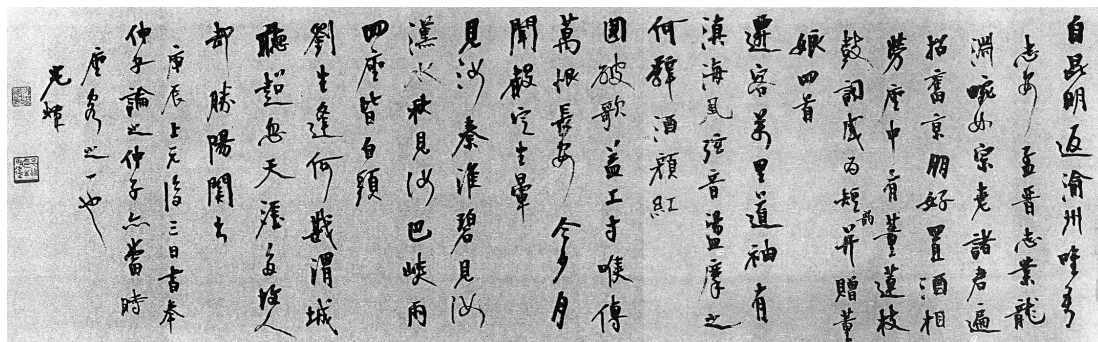 自昆明返渝州
志安孟晉志業龍
淵如宗堯諸君遍
招舊京朋好置酒相
勞座中有董蓮枝
鼓詞成為短韵并贈董
娘四首
遷客萬里道袖有
滇海風弦音盪摩之
何辭酒顏紅
國破歌益工寸喉傳
萬恨長安今夕月
聞鼓定生暈
見汝秦淮碧見汝
漢水秋見汝巴峽雨
四座皆白頭
劉生逢何戡渭城
聽超忽天涯多故人
却勝陽關出
庚辰上元後三日書奉
仲子論之仲子亦當時
座客之一也
光煒